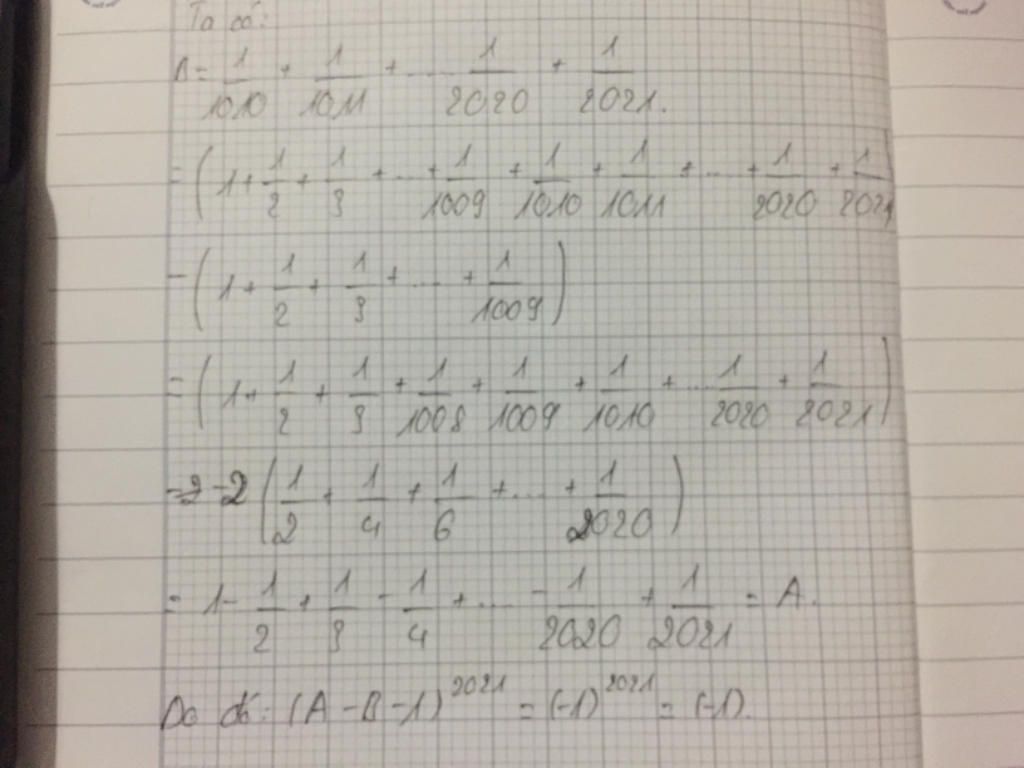 Ta có:
B = 1/1010 + 1/1011 + .... 1/2020 + 1/2021.
= (1 + 1/2 + 1/3 + ... + 1/1009 + 1/1010 + 1/1011 + ... + 1/2020 + 1/2021)
- (1 + 1/2 + 1/3 + .... + 1/1009)
= (1 + 1/2 + 1/3 + 1/1008 + 1/1009 + 1/1010 + ... 1/2020 + 1/2021)
- 2 (1/2 + 1/4 + 1/6 + .... + 1/2020)
= 1 - 1/2 + 1/3 - 1/4 + .... - 1/2020 + 1/2021 = A.
Do đó: (A - B - 1)^2021 = (-1)^2021 = (-1).